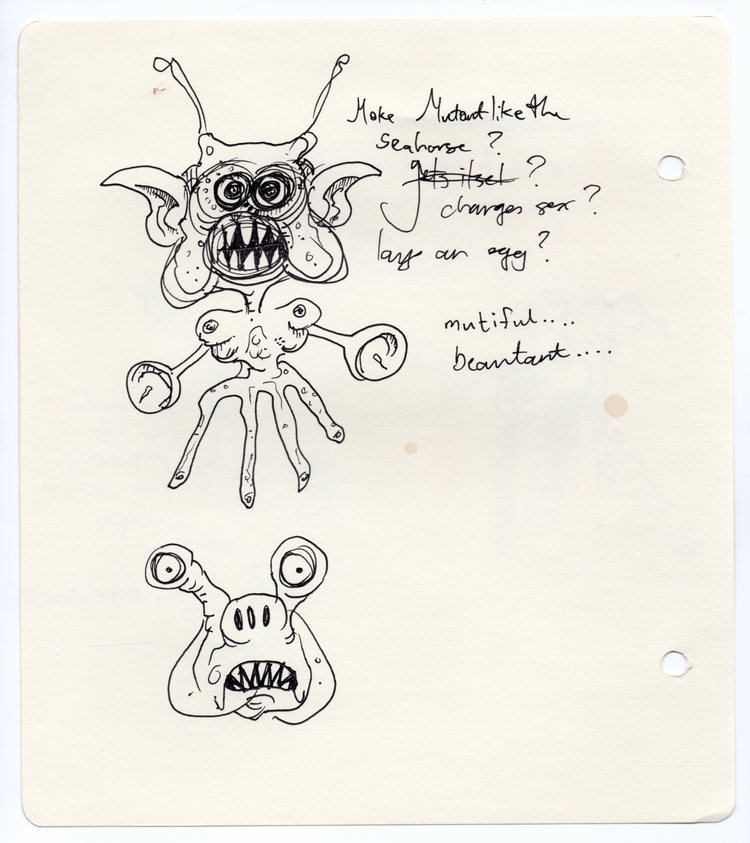 Make Mutant like the
seahorse ?
gets itsel ?
changes sex ?
lays an egg ?
mutiful....
beautant....